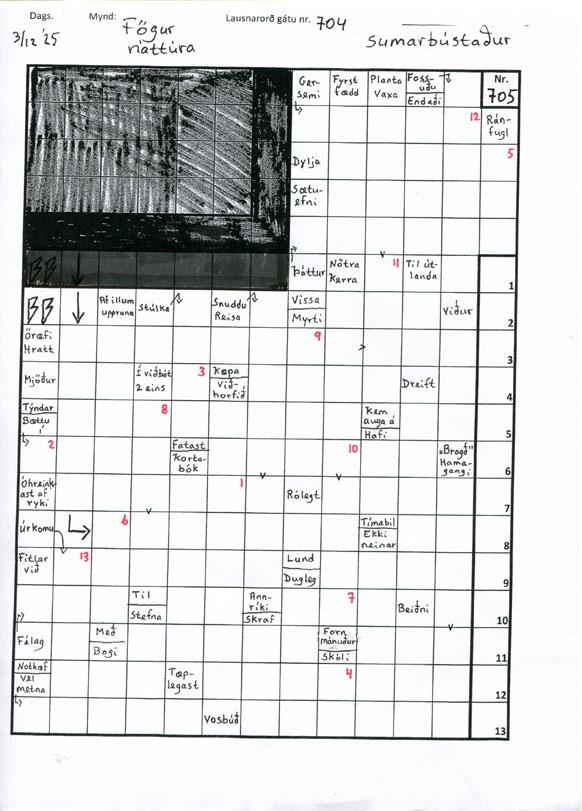 Dags. Mynd: Lausnarorð gátu nr. 704
3/12 '25 Fögur
náttúra Sumarbústaður
Ger-
semi
Fyrst
fædd
Planta
Vaxa
Foss-
uðu
Endaði
Nr.
705
12
Rán-
fugl
Dylja
5
Sætu-
efni
Þáttur
Nötra
Kerra
11
Til út-
landa
1
BB
BB
Af illum
uppruna
Stúlka
Snuddu
Reisa
Vissa
Myrti
Viður
2
Öræfi
Hratt
9
3
Mjöður
Í viðbót
2 eins
3
Kapa
Við-
horfið
Dreift
4
Týndar
Bættu
í
8
Kem
auga á
Hafi
5
2
Fatast
Korta-
bók
10
„Bragð"
Hama-
gangi
6
Óhreink-
ast af
ryki
1
Rólegt
7
Úrkomu
6
Tímabil
Ekki
neinar
8
Fitlar
við
13
Lund
Dugleg
9
Til
Stefna
Ann-
ríki
Skraf
7
Beiðni
10
Félag
Með
Bogi
Forn
mánuður
Skóli
11
Nothæf
Vel
metna
Tæp-
legast
4
12
Vosbúð
13